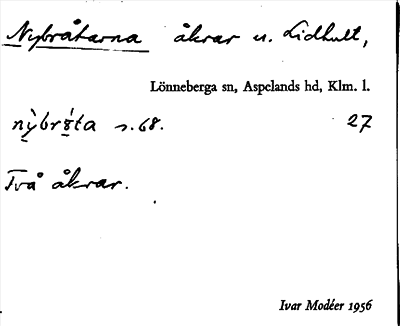 Nybråtarna åkrar u. Lidhult,
Lönneberga sn, Aspelands hd, Klm. l.
s. 68. 27
Två åkrar.
Ivar Modéer 1956